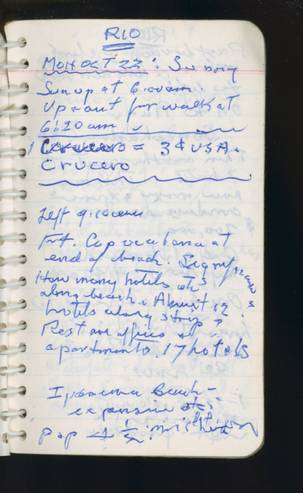 RIO
MON OCT 22: Sunny
Sun up at 6:00am
Up & out for walk at
6:20 am
= 3¢ USA.
Crucero
Left
Frt. Copacabana at
end of beach.
How many hotels etc
along beach? About 12
hotels along strip
Rest are offices &
apartments. 17 hotels
Ipanema Beach -
expensive etc.
Pop 4 1/2